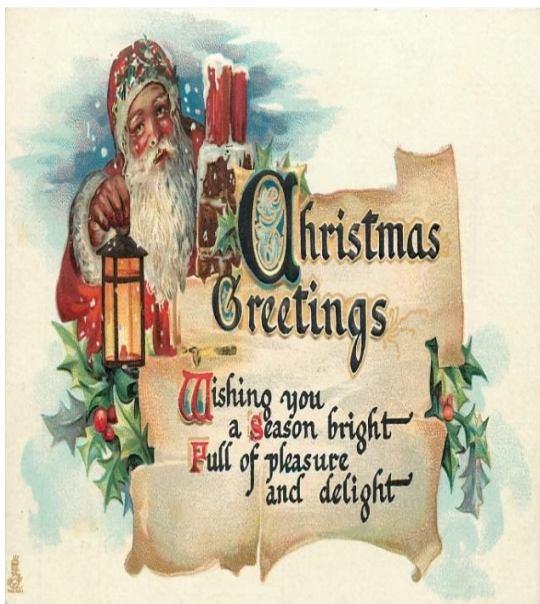 Christmas
Greetings
Wishing you
a Season bright
Full of pleasure
and delight